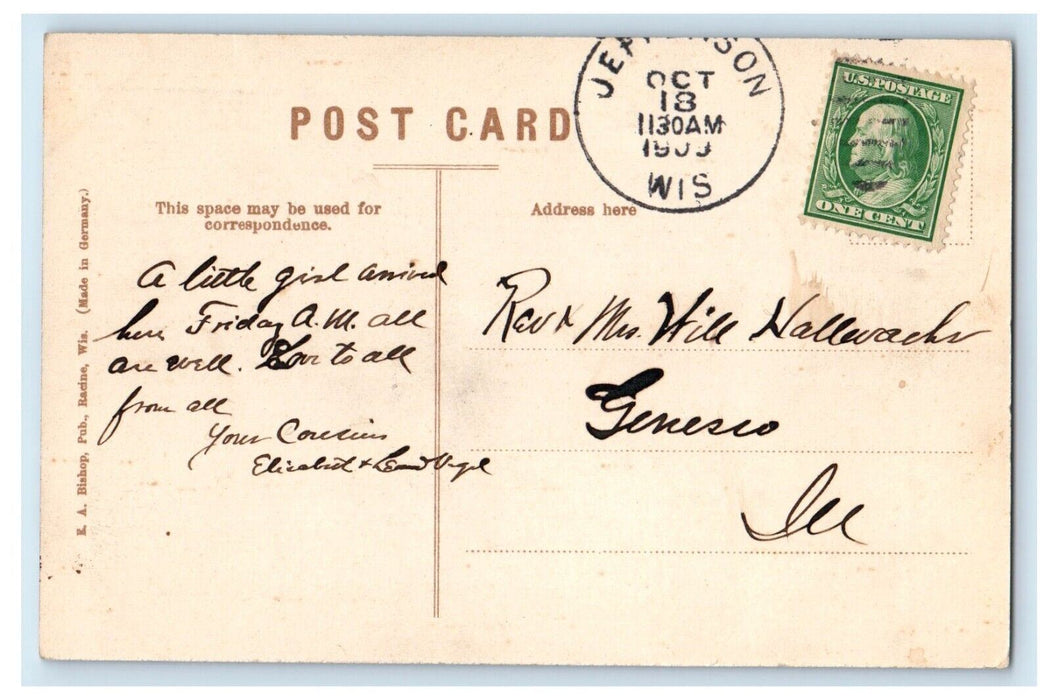 POST CARD
JEFFERSON
OCT
18
1130AM
1909
WIS
U.S. POSTAGE
ONE CENT
This space may be used for
correspondence.
Address here
E. A. Bishop, Pub., Racine, Wis. (Made in Germany.)
A little girl arrived
here Friday A.M. all
are well. Love to all
from all
Your Cousins
Elizabeth &
Rev & Mrs. Will Hallwachs
Geneseo
Ill